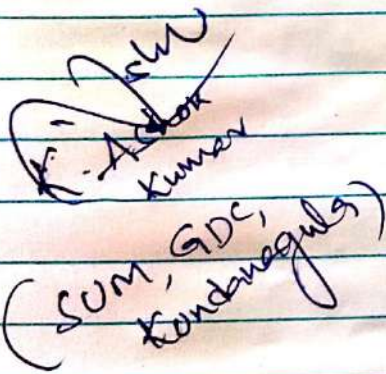 K. Ashok
Kumar
(SVM, GDC,
Kondanagula)